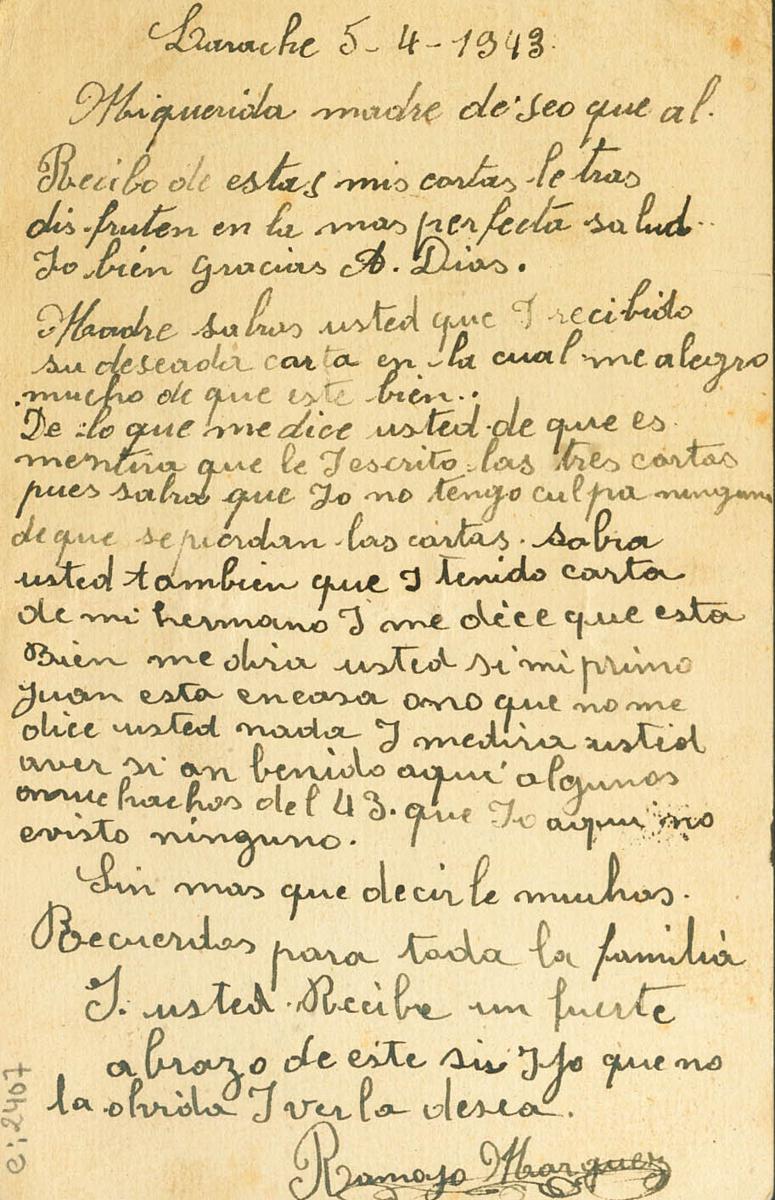 Larache 5-4-1943.
Mi querida madre deseo que al.
Recibo de estas mis cortas letras
disfruten en la mas perfecta salud.
Io bién gracias A. Dios.
Madre sabras usted que I recibido
su deseada carta en la cual me alegro
mucho de que este bien..
De lo que me dice usted de que es
mentira que le I escrito las tres cartas
pues sabra que Io no tengo culpa ninguna
de que se pierdan las cartas. sabra
usted tambien que I tenido carta
de mi hermano I me dice que esta
Bien me dira usted si mi primo
Juan esta encasa ono que no me
dice usted nada I medira usted
aver si an benido aqui algunos
muchachos del 43. que Io aqui no
evisto ninguno.
Sin mas que decirle muchos.
Recuerdos para toda la familia
I. usted. Recibe un fuerte
abrazo de este su Ijo que no
la olvida I verla desea.
Ramojo Marquez
e:2407